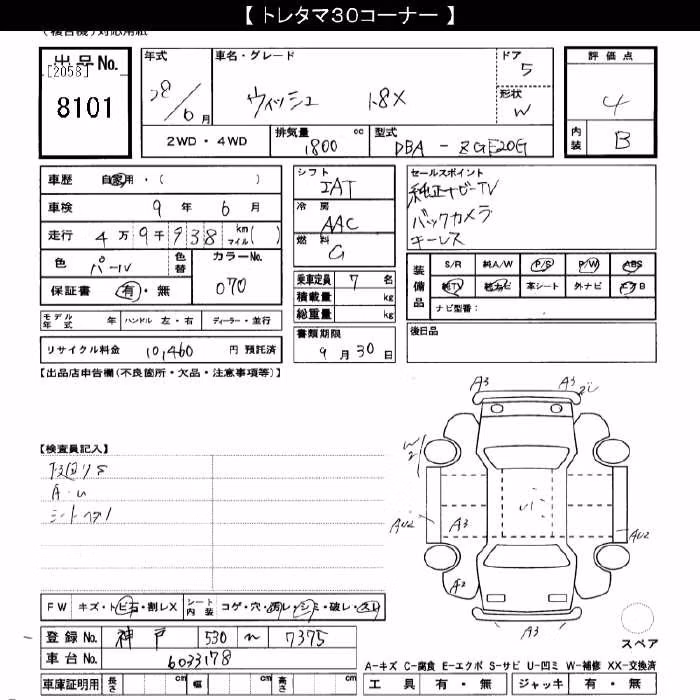 【トレタマ30コーナー】
(複合機)対応用紙
出品No. [2058] 8101
年式 28/6月
車名・グレード ウィッシュ 1.8X
ドア 5
形状 W
評価点 4
内装 B
2WD・4WD
排気量 1800 cc
型式 DBA-ZGE20G
車歴 自家用・( )
車検 9年6月
走行 4万9千938 km マイル( )
色 パール 色替
カラーNo. 070
保証書 有・無
シフト IAT
冷房 AAC
燃料 G
乗車定員 7名
積載量 kg
総重量 kg
書類期限 9月30日
セールスポイント
純正ナビ-TV
バックカメラ
キーレス
装備品 S/R 純A/W P/S P/W ABS
純TV 純ナビ 革シート 外ナビ エアB
ナビ型番:
モデル年式 年 ハンドル 左・右 ディーラー・並行
後日品
リサイクル料金 10,460 円 預託済
【出品店申告欄(不良箇所・欠品・注意事項等)】
A3 A3
W2
【検査員記入】
A・U
シートヘタリ
AU2 A3 AU2
A2
A3
スペア
FW キズ・トビ石・割レX シート内装 コゲ・穴・汚レ・シミ・破レ・スレ
登録No. 神戸 530 ル 7375
車台No. 6033178
A-キズ C-腐食 E-エクボ S-サビ U-凹ミ W-補修 XX-交換済
車庫証明用 長さ cm 幅 cm 高さ cm
工具 有・無 ジャッキ 有・無